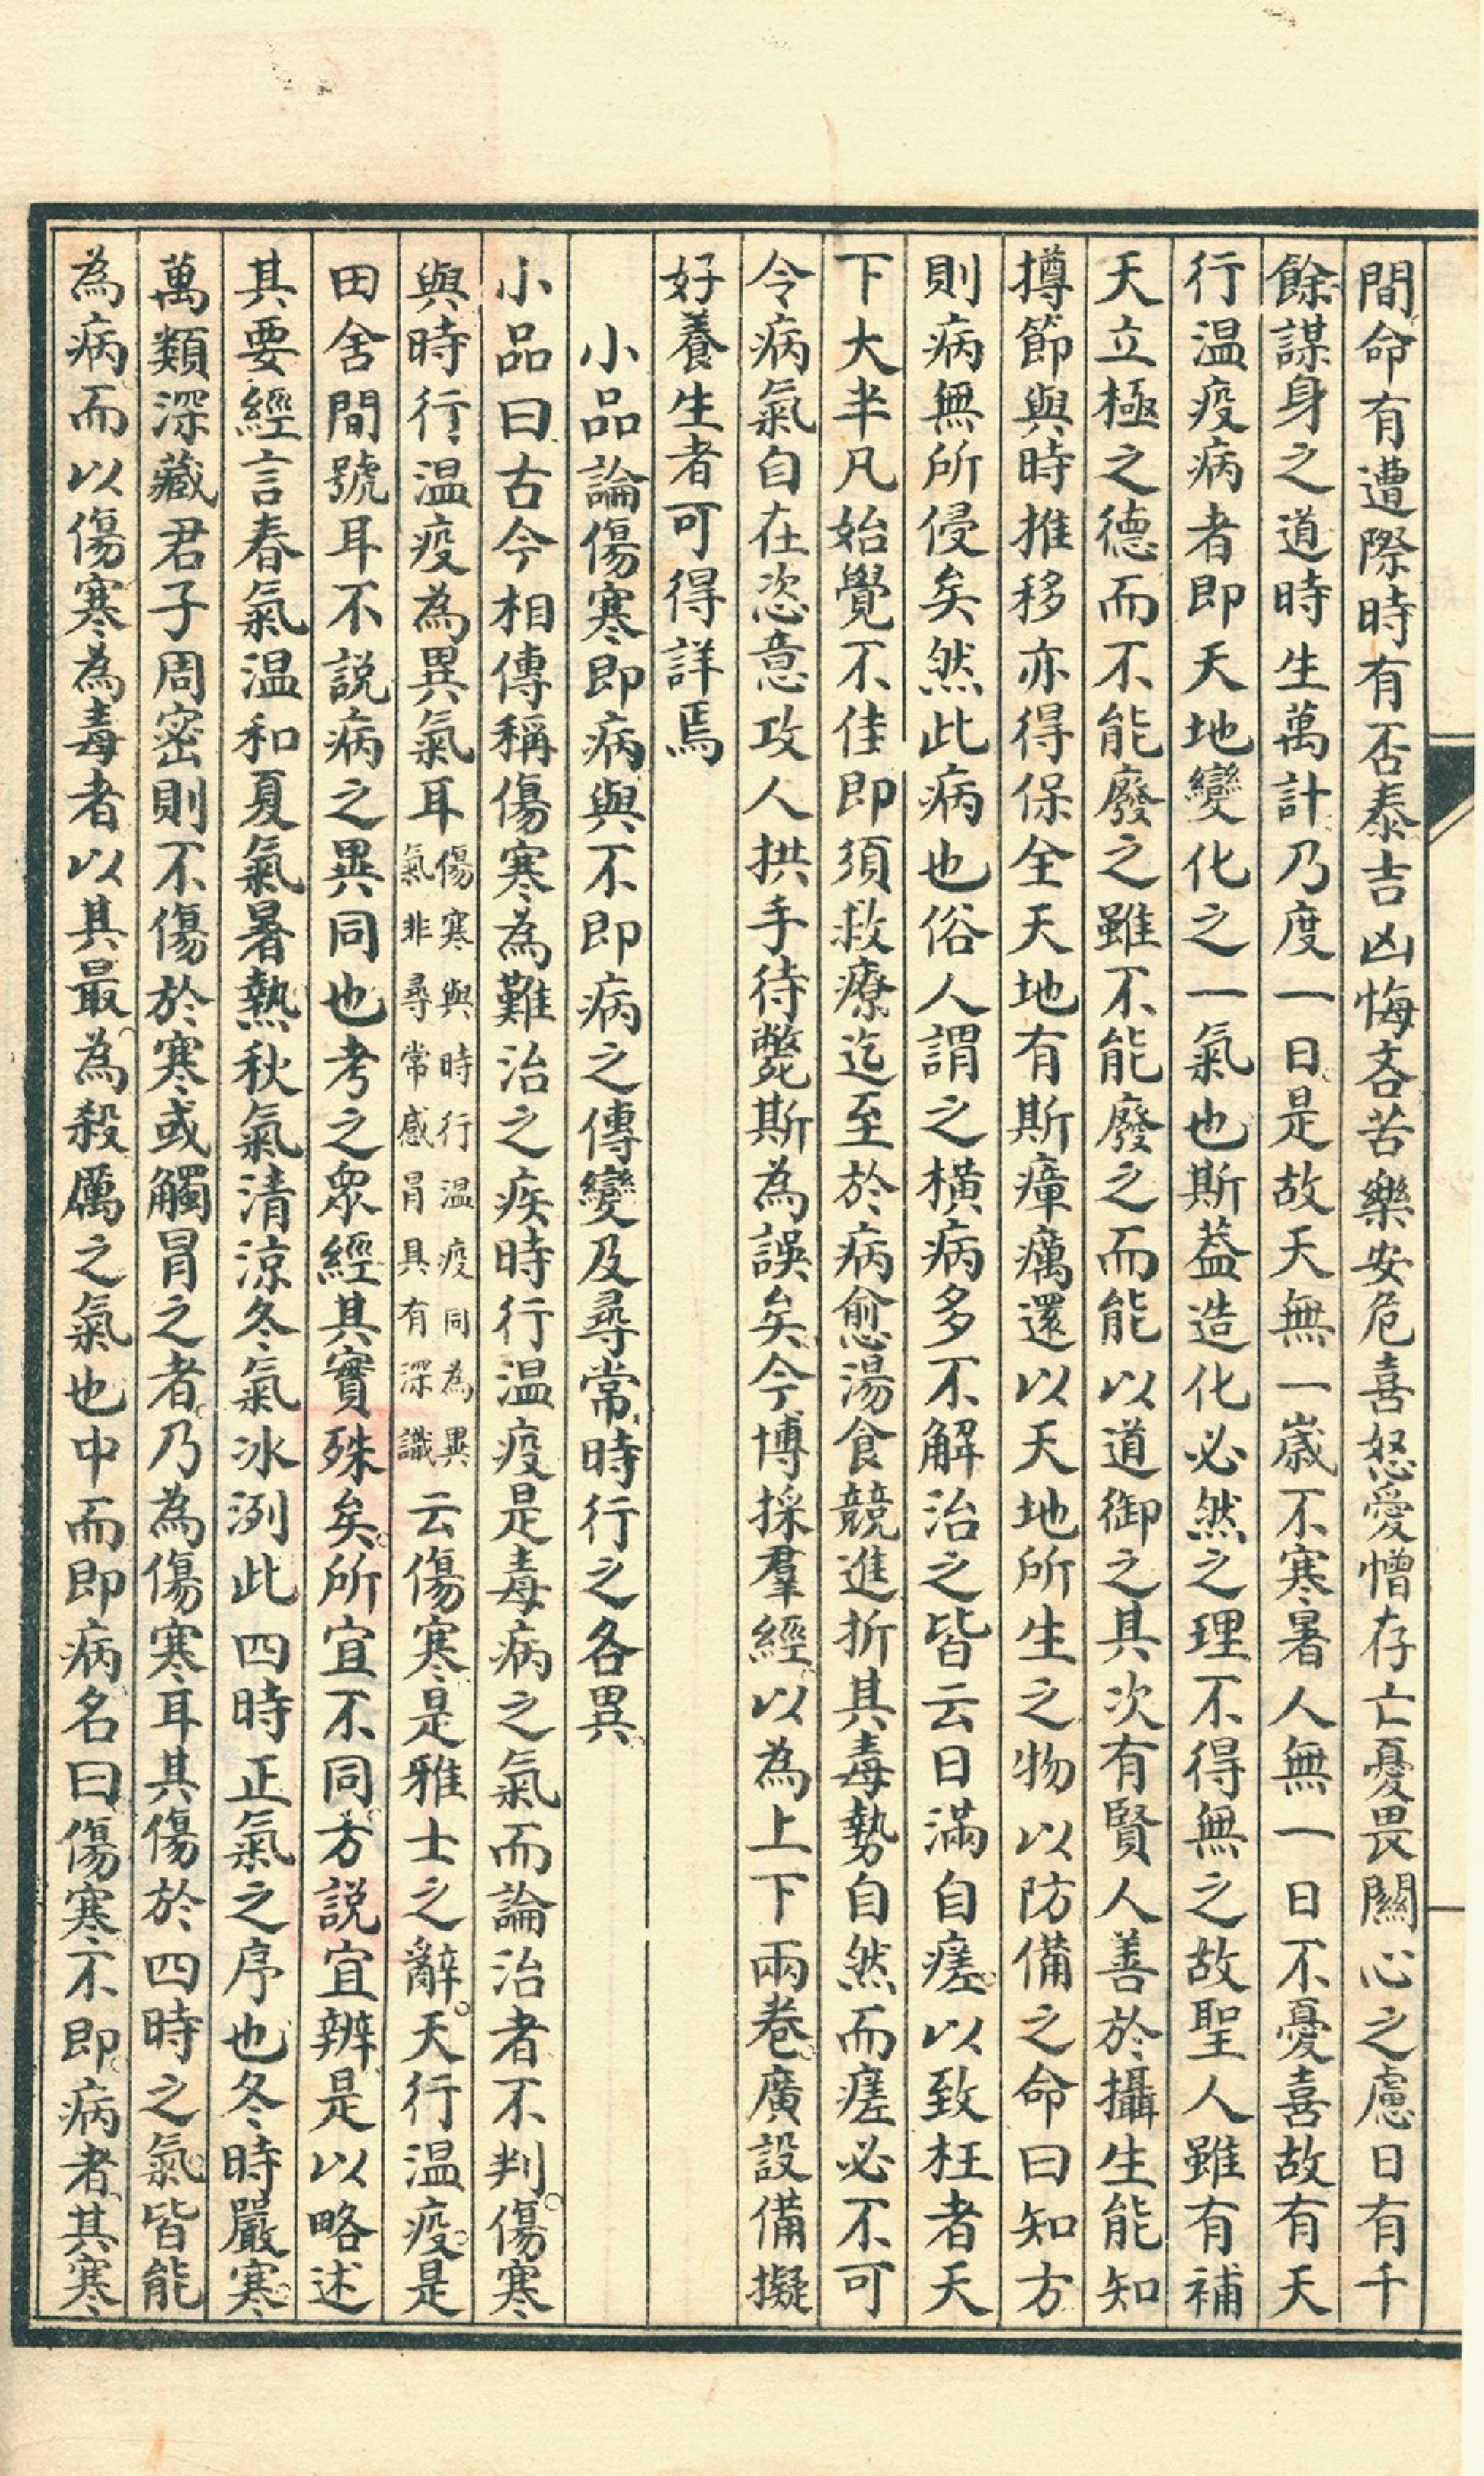 間命有遭際時有否泰吉凶悔吝苦樂安危喜怒愛憎存亡憂畏關心之慮日有千
餘謀身之道時生萬計乃度一日是故天無一歲不寒暑人無一日不憂喜故有天
行温疫病者即天地變化之一氣也斯蓋造化必然之理不得無之故聖人雖有補
天立極之德而不能廢之雖不能廢之而能以道御之具次有賢人善於攝生能知
撙節與時推移亦得保全天地有斯瘴癘還以天地所生之物以防備之命曰知方
則病無所侵矣然此病也俗人謂之橫病多不解治之皆云日滿自瘥以致枉者天
下大半凡始覺不佳即須救療迄至於病愈湯食競進折其毒勢自然而瘥必不可
令病氣自在恣意攻人拱手待斃斯為誤矣今博採羣經以為上下兩卷廣設備擬
好養生者可得詳焉
小品論傷寒即病與不即病之傳變及尋常時行之各異
小品曰古今相傳稱傷寒為難治之疾時行温疫是毒病之氣而論治者不判傷寒
與時行温疫為異氣耳傷寒與時行温疫同為異氣非尋常感冒具有深識云傷寒是雅士之辭天行温疫是
田舍間號耳不説病之異同也考之眾經其實殊矣所宜不同方説宜辨是以略述
其要經言春氣温和夏氣暑熱秋氣清涼冬氣冰洌此四時正氣之序也冬時嚴寒
萬類深藏君子周密則不傷於寒或觸冒之者乃為傷寒耳其傷於四時之氣皆能
為病而以傷寒為毒者以其最為殺厲之氣也中而即病名曰傷寒不即病者其寒